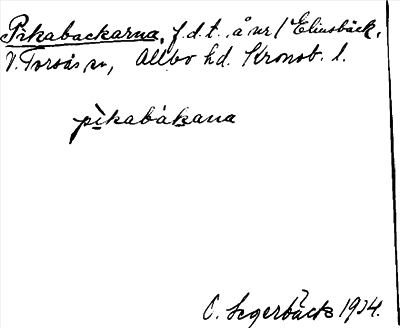 Pikabackarna, f.d.t. å nr 1 Elinsbäck,
V. Torsås sn, Allbo hd. Kronob. l.
pìkabákana
C. Segerbäck 1934.